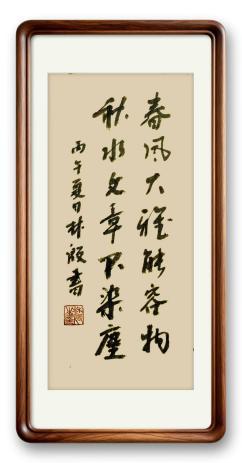 春风大雅能容物
秋水文章不染尘
丙午夏日林颀书